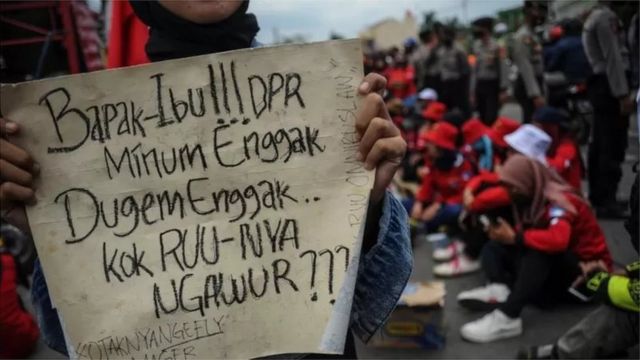 Bapak-Ibu!!! DPR
Minum Enggak
Dugem Enggak..
kok RUU-NYA
NGAWUR???
KOTAKNYANGEELY
RUU OMNIBUSLAW